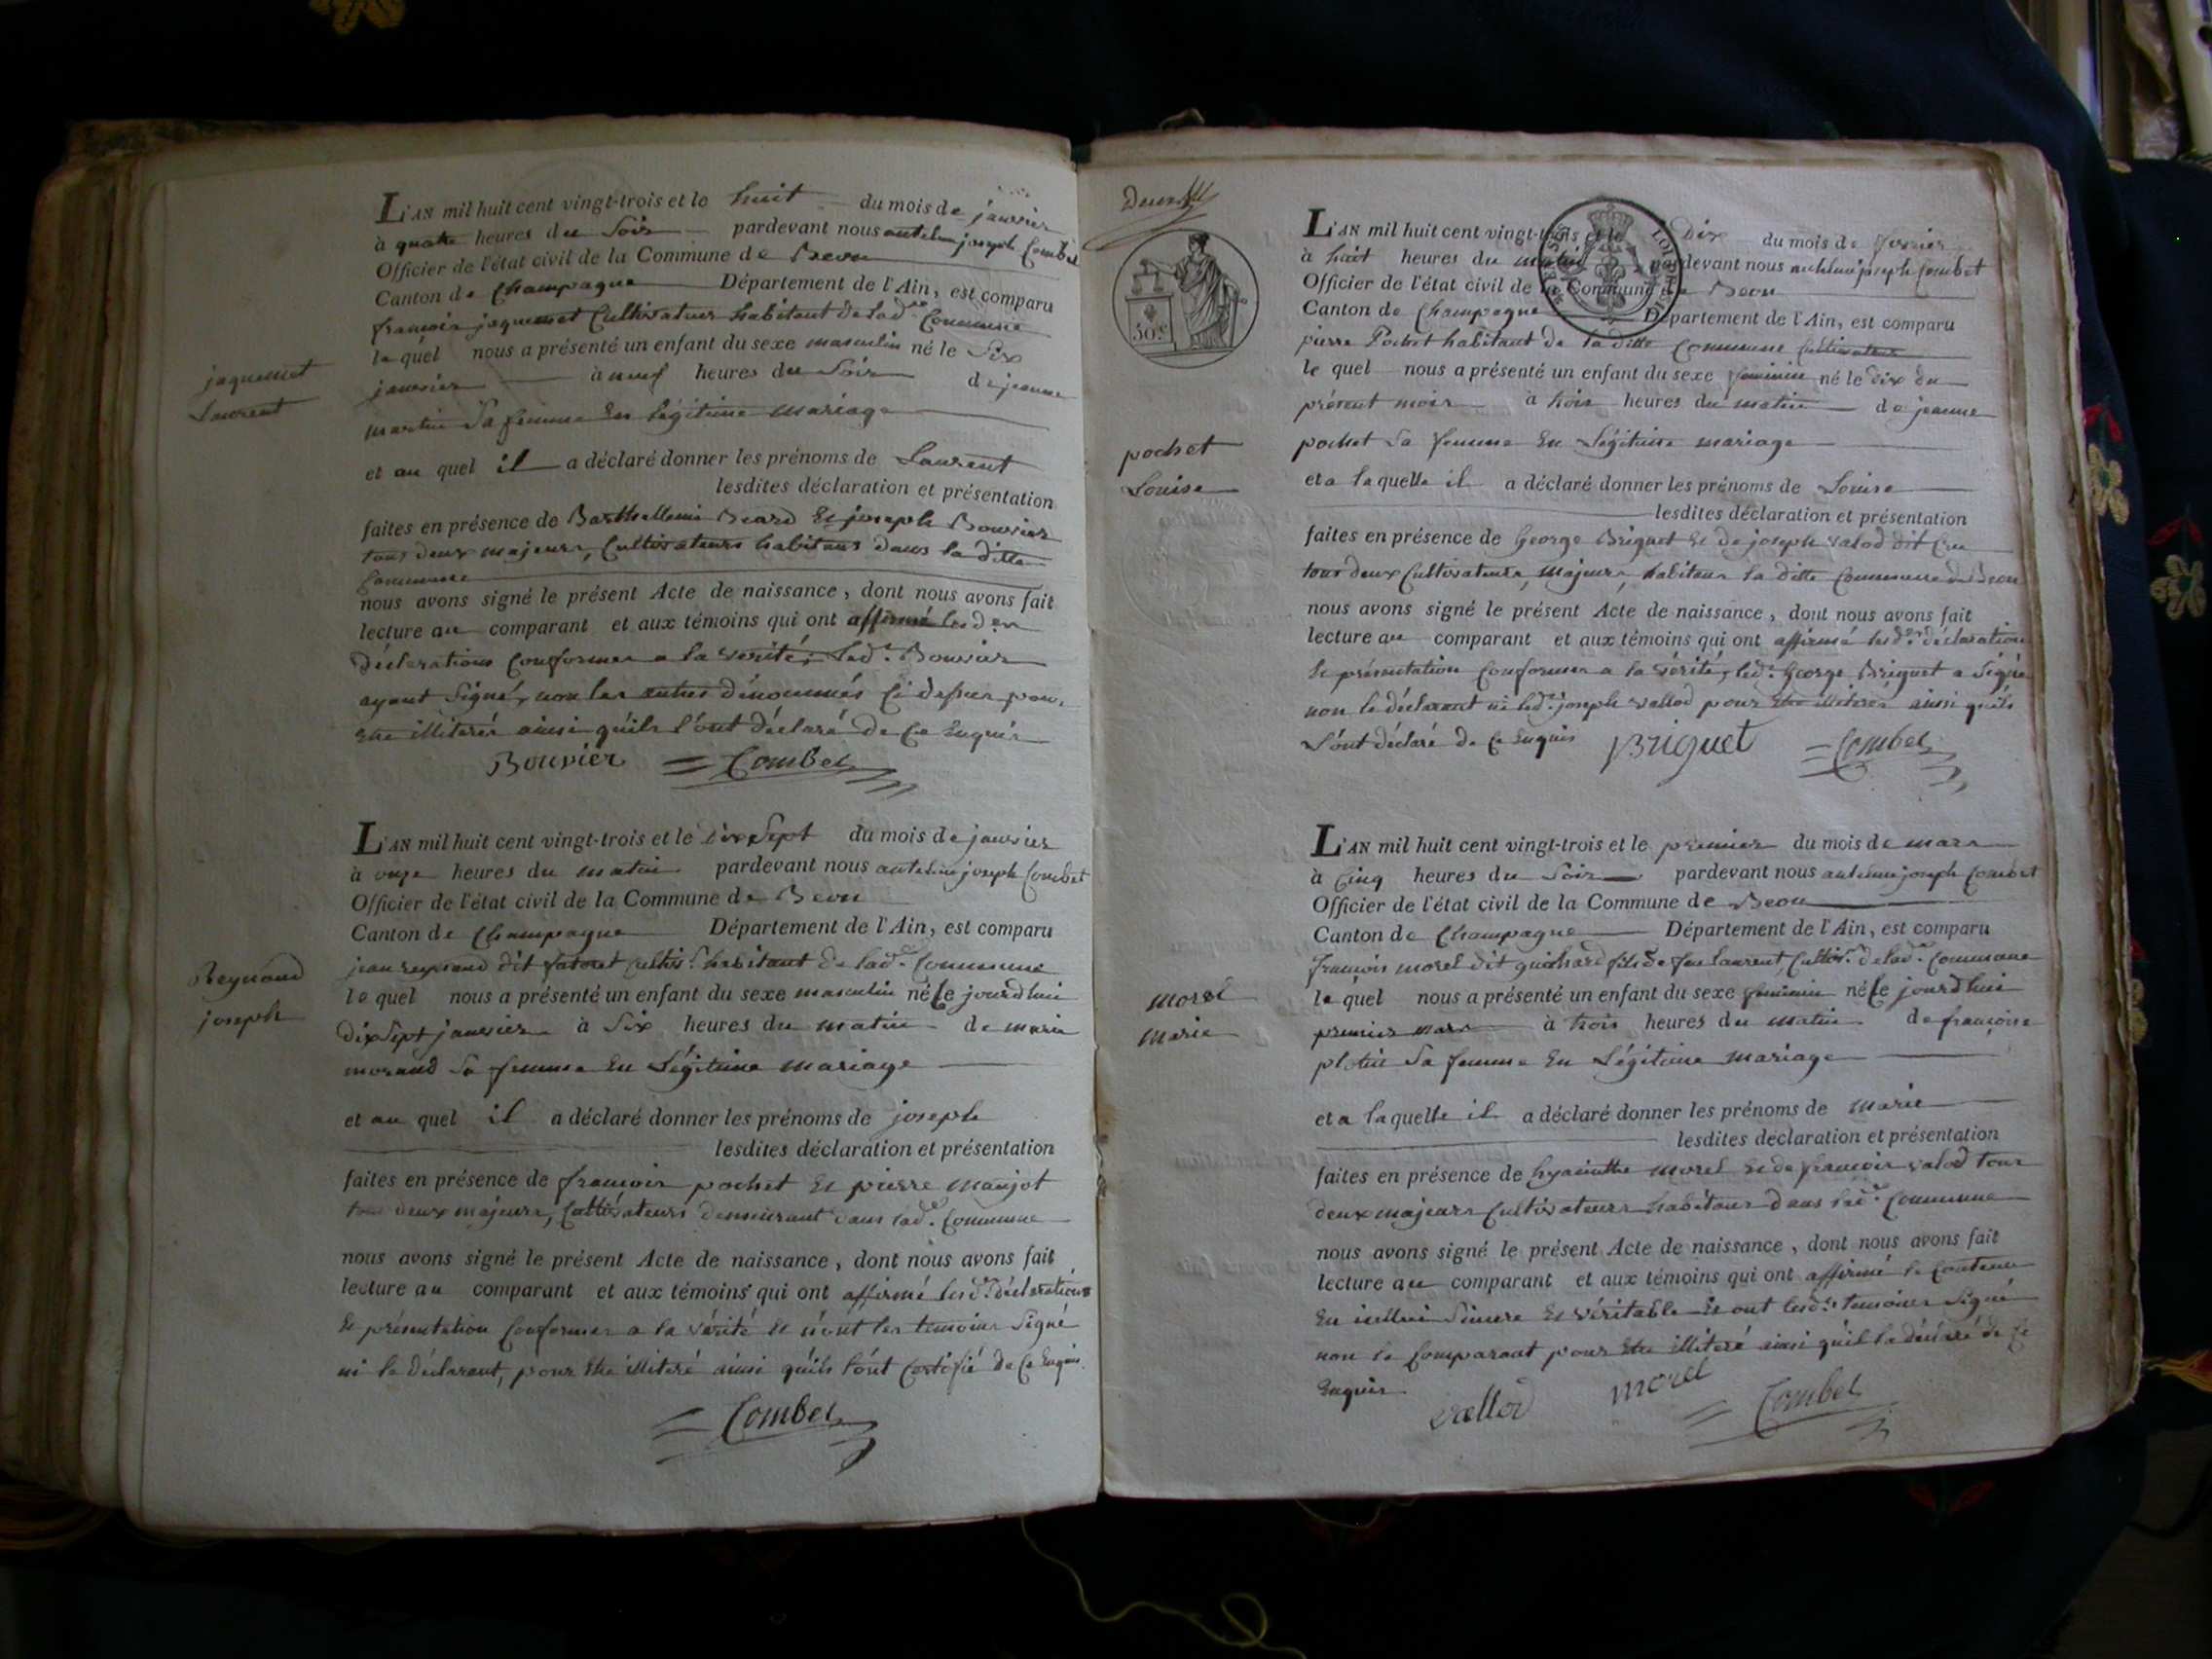 L'AN mil huit cent vingt-trois et le huit du mois de janvier
à quatre heures du Soir pardevant nous antelme joseph Combet
Officier de l'état civil de la Commune de Beon
Canton de Champagne Département de l'Ain, est comparu
françois jaquemet Cultivateur habitant de lad.e Commune
le quel nous a présenté un enfant du sexe masculin né le Six
janvier à neuf heures du Soir de jeanne
martin Sa femme En légitime mariage
et au quel il a déclaré donner les prénoms de Laurent
lesdites déclaration et présentation
faites en présence de Barthellemi Beard Et joseph Bouvier
tous deux majeurs, Cultivateurs habitans dans la ditte
Commune
nous avons signé le présent Acte de naissance, dont nous avons fait
lecture au comparant et aux témoins qui ont affirmé lesd.es
déclarations Conformes a la vérité; led.t Bouvier
ayant Signé, non les autres dénommés Ci dessus pour
Etre illiterés ainsi qu'ils l'ont déclaré de Ce Enquis
jaquemet
Laurent
Bouvier Combet
L'AN mil huit cent vingt-trois et le dix Sept du mois de janvier
à onze heures du matin pardevant nous antelme joseph Combet
Officier de l'état civil de la Commune de Beon
Canton de Champagne Département de l'Ain, est comparu
jean reynaud dit Cultiv.r habitant de lad.e Commune
le quel nous a présenté un enfant du sexe masculin né Ce jourd'hui
dix Sept janvier à Six heures du matin de marie
morand Sa femme En Légitime mariage
et au quel il a déclaré donner les prénoms de joseph
lesdites déclaration et présentation
faites en présence de françois pochet Et pierre manjot
tous deux majeurs, Cultivateurs demeurant dans lad.e Commune
nous avons signé le présent Acte de naissance, dont nous avons fait
lecture au comparant et aux témoins qui ont affirmé lesd.es déclarations
Et présentation Conformes a la vérité Et n'ont les temoins Signé
ni le déclarant, pour Etre illiteré ainsi qu'ils l'ont Certifié de Ce Enquis.
Reynaud
joseph
Combet
30 c.
L'AN mil huit cent vingt-trois et le Dix du mois de fevrier
à huit heures du matin pardevant nous antelme joseph Combet
Officier de l'état civil de la Commune de Beon
Canton de Champagne Département de l'Ain, est comparu
pierre Pochet habitant de la ditte Commune Cultivateur
le quel nous a présenté un enfant du sexe feminin né le dix du
présent mois à trois heures du matin de jeanne
pochet Sa femme En Légitime mariage
et a la quelle il a déclaré donner les prénoms de Louise
lesdites déclaration et présentation
faites en présence de George Briguet Et de joseph valod dit
tous deux Cultivateurs, majeurs, habitans la ditte Commune de Beon
nous avons signé le présent Acte de naissance, dont nous avons fait
lecture au comparant et aux témoins qui ont affirmé lesd.es déclaration
Et présentation Conformes a la vérité, led.t George Briguet a Signé
non le déclarant ni led.t joseph vallod pour Etre illiterés ainsi qu'ils
L'ont déclaré de Ce Enquis
pochet
Louise
Briguet Combet
L'AN mil huit cent vingt-trois et le premier du mois de mars
à Cinq heures du Soir pardevant nous antelme joseph Combet
Officier de l'état civil de la Commune de Beon
Canton de Champagne Département de l'Ain, est comparu
françois morel dit guichard fils de feu laurent, Cultiv.r de lad.e Commune
le quel nous a présenté un enfant du sexe feminin né Ce jourd'hui
premier mars à trois heures du matin de françoise
Sa femme En Légitime mariage
et a laquelle il a déclaré donner les prénoms de marie
lesdites déclaration et présentation
faites en présence de hyacinthe morel Et de françois valod tous
deux majeurs Cultivateurs habitans dans lad.e Commune
nous avons signé le présent Acte de naissance, dont nous avons fait
lecture au comparant et aux témoins qui ont affirmé le Contenu
En icellui Sincere Et véritable Et ont lesd.ts temoins Signé
non le Comparant pour Etre illiteré ainsi qu'il la déclaré de Ce
Enquis
morel
marie
vallod morel Combet